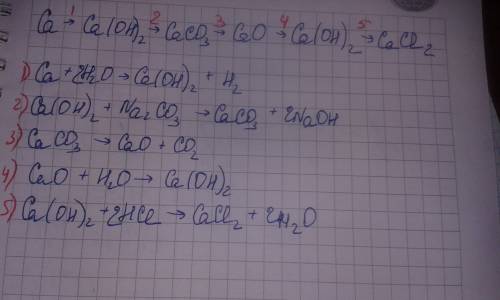 Ca →1 Ca(OH)2 →2 CaCO3 →3 CaO →4 Ca(OH)2 →5 CaCl2
1) Ca + 2H2O → Ca(OH)2 + H2
2) Ca(OH)2 + Na2CO3 → CaCO3 + 2NaOH
3) CaCO3 → CaO + CO2
4) CaO + H2O → Ca(OH)2
5) Ca(OH)2 + 2HCl → CaCl2 + 2H2O